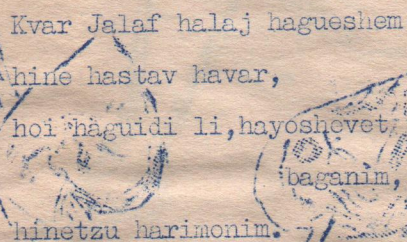 Kvar Jalaf halaj hagueshem
hine hastav havar,
hoi haguidi li,hayoshevet
baganim,
hinetzu harimonim.